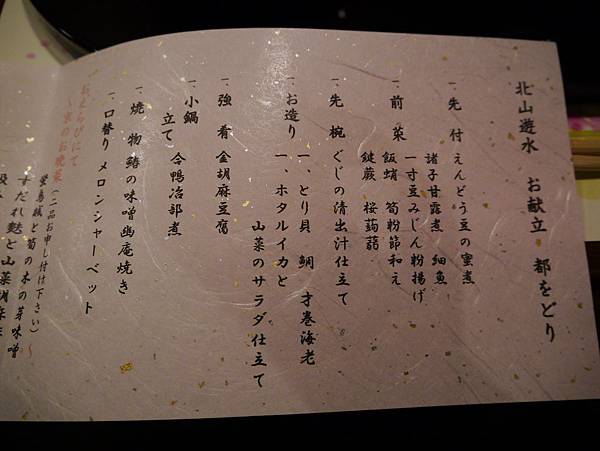 北山遊水　お献立　都をどり
一、先　付　えんどう豆の蜜煮
諸子甘露煮　細魚
一寸豆みじん粉揚げ
一、前　菜　飯蛸　筍粉節和え
鍵蕨　桜蒟蒻
一、先　椀　ぐじの清出汁仕立て
一、お造り　一、とり貝　鯛　才巻海老
一、ホタルイカと
山菜のサラダ仕立て
一、強　肴　金胡麻豆腐
一、小鍋
立て　合鴨冶部煮
一、焼　物　鰆の味噌幽庵焼き
一、口替り　メロンシャーベット
おえらびにて
～京のお晩菜（二品お申し付け下さい）～
蛍烏賊と筍の木の芽味噌
すだれ麩と山菜胡麻